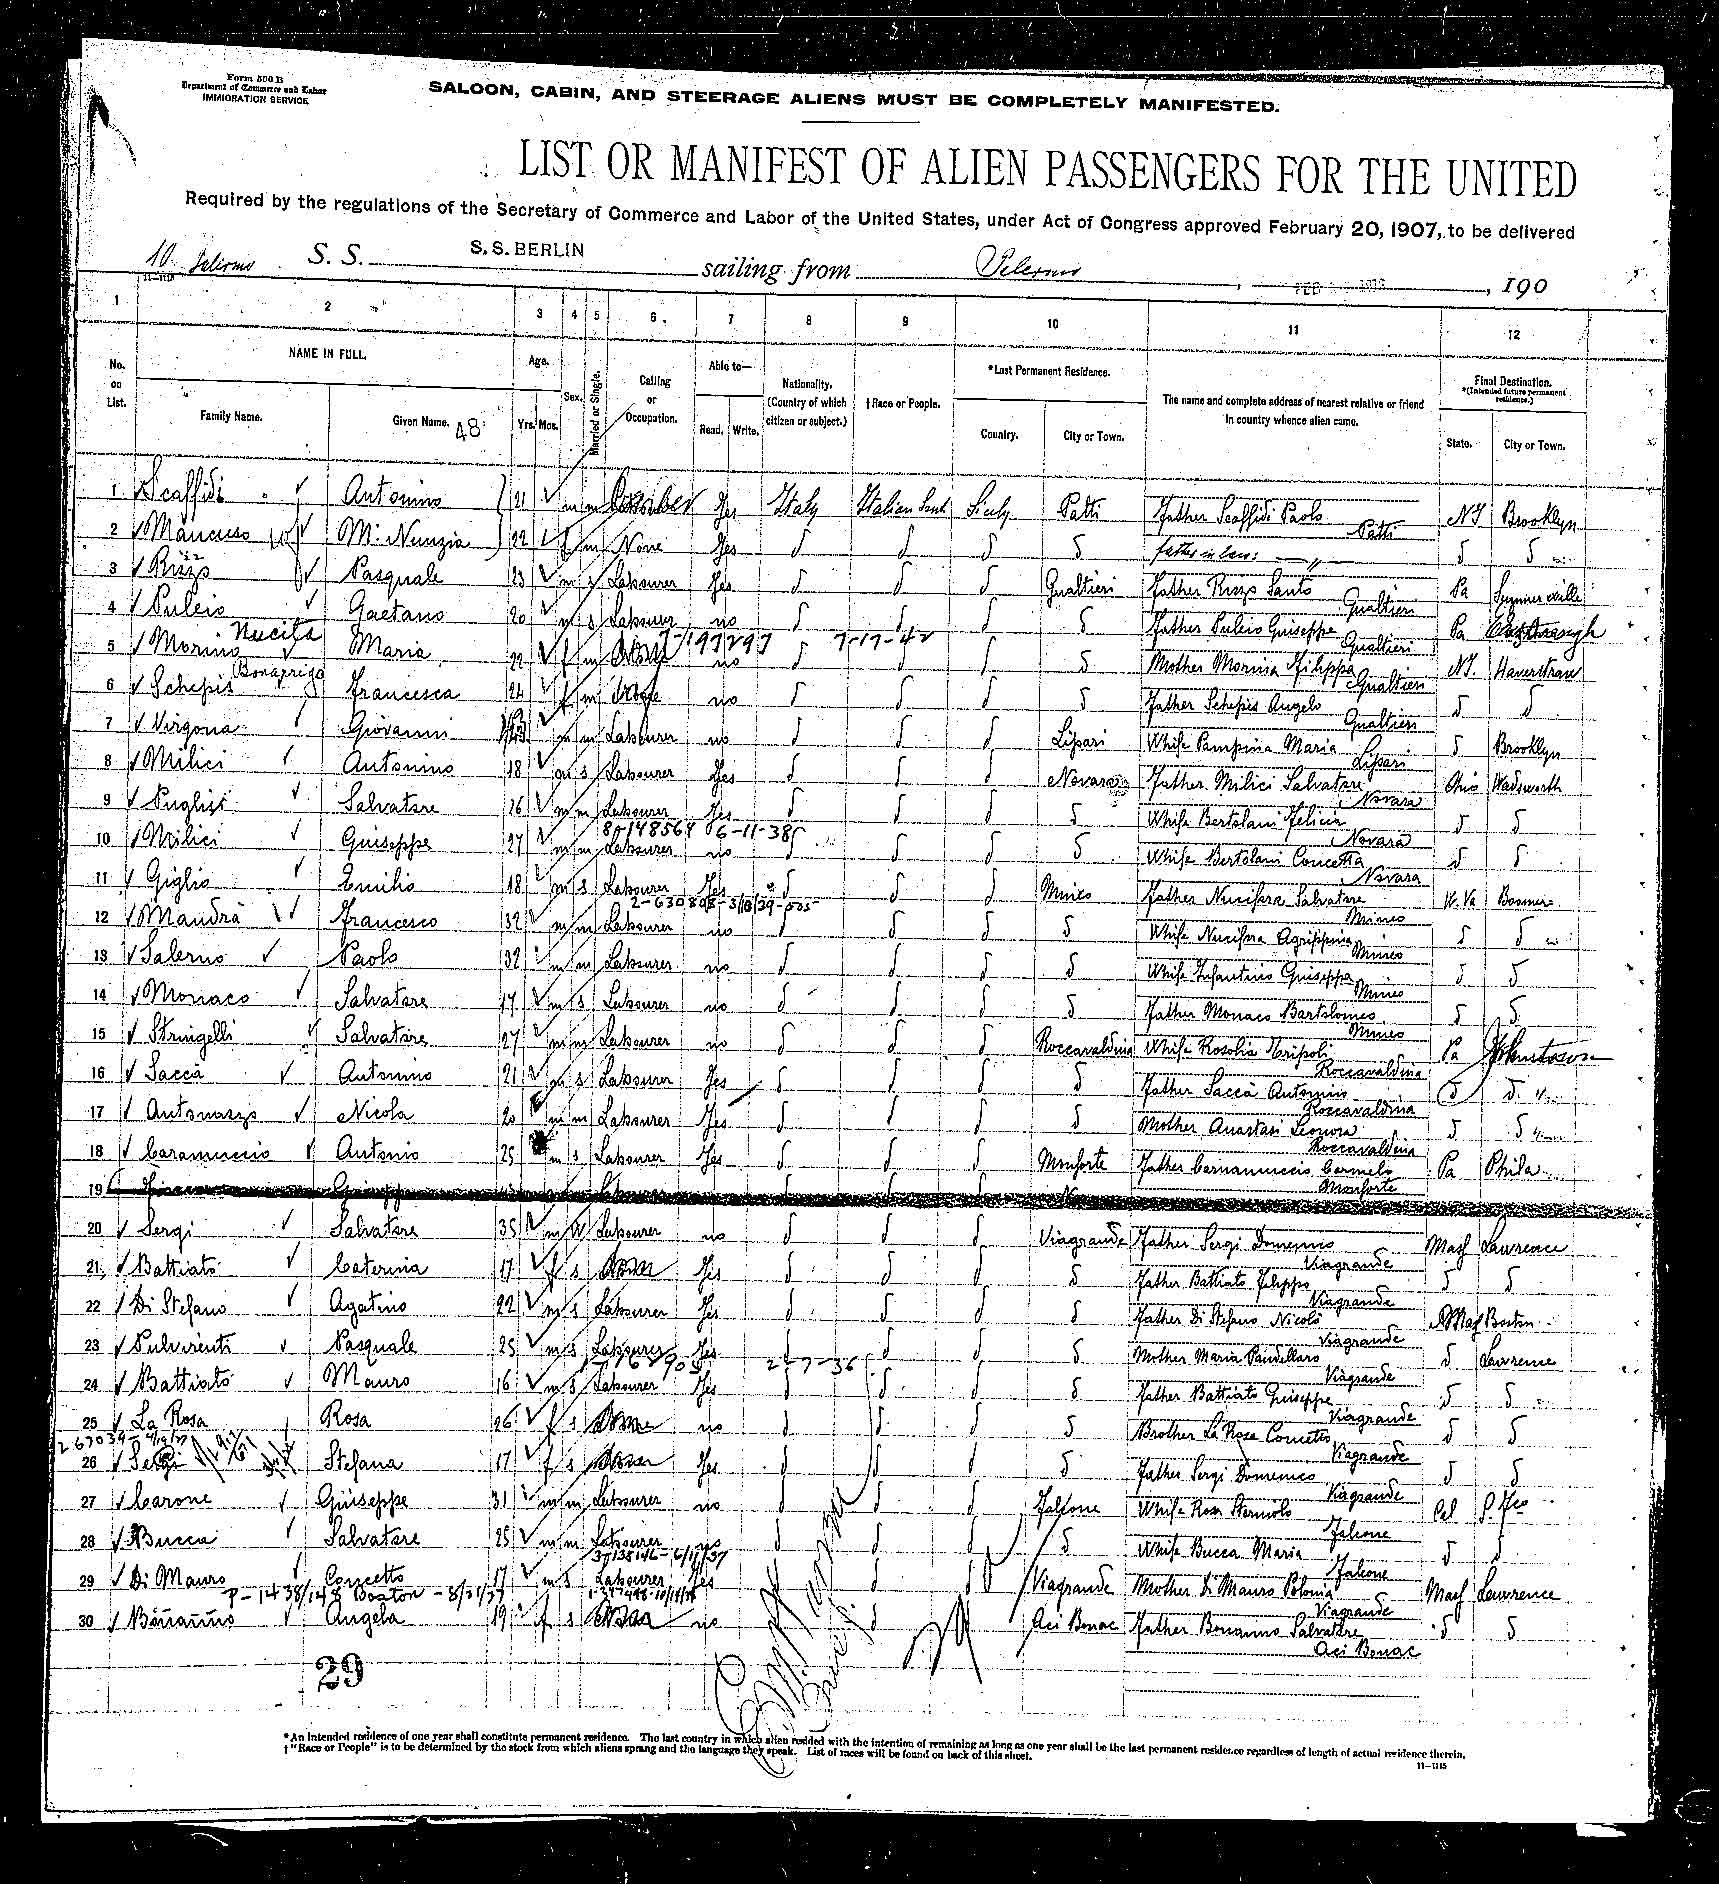 Form 500 B
Department of Commerce and Labor
IMMIGRATION SERVICE
SALOON, CABIN, AND STEERAGE ALIENS MUST BE COMPLETELY MANIFESTED.
LIST OR MANIFEST OF ALIEN PASSENGERS FOR THE UNITED
Required by the regulations of the Secretary of Commerce and Labor of the United States, under Act of Congress approved February 20, 1907, to be delivered
10 Palermo S. S. S. S. BERLIN sailing from Palermo, FEB 1910, 190
1 2 3 4 5 6. 7 8 9 10 11 12
No. on List. NAME IN FULL. Age. Sex. Married or Single. Calling or Occupation. Able to— Nationality. (Country of which citizen or subject.) †Race or People. *Last Permanent Residence. The name and complete address of nearest relative or friend in country whence alien came. Final Destination. *(Intended future permanent residence.)
Family Name. Given Name. 48 Yrs. Mos. Read. Write. Country. City or Town. State. City or Town.
1 Scaffidi Antonino 21 m m Yes Italy Italian South Sicily Patti Father Scaffidi Paolo Patti NY Brooklyn
2 Mancuso Ma. Nunzia 22 f m None Yes " " " " father in law: — " — " "
3 Rizzo Pasquale 23 m s Labourer Yes " " " Gualtieri Father Rizzo Santo Gualtieri Pa
4 Puleio Gaetano 20 m s Labourer no " " " " Father Puleio Guiseppe Gualtieri Pa
Nucita 7-197297 7-17-42
5 Morina Maria 22 f m None no " " " " Mother Morina Filippa Gualtieri NY. Haverstraw
Bonaprigo
6 Schepis Francesca 24 f m None no " " " " Father Schepis Angelo Gualtieri " "
7 Virgona Giovanni m m Labourer no " " " Lipari Whife Pampina Maria Lipari " Brooklyn
8 Milici Antonino 18 m s Labourer Yes " " " Novara Father Milici Salvatore Novara Ohio Wadsworth
9 Puglisi Salvatore 26 m m Labourer Yes " " " " Whife Bertolani Felicia Novara " "
8-148564 6-11-38
10 Milici Guiseppe 27 m m Labourer no " " " " Whife Bertolani Concetta Novara " "
11 Giglio Emilio 18 m s Labourer Yes " " " Mineo Father Nucifora Salvatore Mineo W. Va
12 Mandrà Francesco 32 m m Labourer no " " " " Whife Nucifora Agrippina Mineo " "
13 Salerno Paolo 32 m m Labourer no " " " " Whife Infantino Guiseppa Mineo " "
14 Monaco Salvatore 17 m s Labourer no " " " " Father Monaco Bartolomeo Mineo " "
15 Stringelli Salvatore 27 m m Labourer no " " " Roccavaldina Whife Rosolia Tripoli Roccavaldina Pa Johnstown
16 Saccà Antonino 21 m s Labourer Yes " " " " Father Saccà Antonino Roccavaldina " "
17 Antonazzo Nicola 20 m m Labourer Yes " " " " Mother Anastasi Leonora Roccavaldina " "
18 Caramuccio Antonio 25 m s Labourer Yes " " " Monforte Father Carnamuccio Carmelo Monforte Pa Phila
19 Guiseppe
20 Sergi Salvatore 35 m W Labourer no " " " Viagrande Father Sergi Domenico Viagrande Mass Lawrence
21 Battiato Caterina 17 f s None Yes " " " " Father Battiato Filippo Viagrande " "
22 Di Stefano Agatino 22 m s Labourer Yes " " " " Father Di Stefano Nicolò Viagrande Mass Boston
23 Pulvirenti Pasquale 25 m s Labourer Yes " " " " Mother Maria Pandellaro Viagrande " Lawrence
2-7-36
24 Battiato Mauro 16 m s Labourer Yes " " " " Father Battiato Guiseppe Viagrande " "
25 La Rosa Rosa 26 f s None no " " " " Brother La Rosa Concetto Viagrande " "
26 Sergi Stefana 17 f s None Yes " " " " Father Sergi Domenico Viagrande " "
27 Carone Guiseppe 31 m m Labourer no " " " Falcone Whife Rosa Sterniolo Falcone Cal S. Fco
28 Bucca Salvatore 25 m m Labourer no " " " " Whife Bucca Maria Falcone " "
29 Di Mauro Concetto 17 m s Labourer Yes " " " Viagrande Mother Di Mauro Polonia Viagrande Mass Lawrence
P-1438/148 Boston - 8/31/37
30 Bonanno Angela 19 f s None no " " " Aci Bonac Father Bonanno Salvatore Aci Bonac " "
29
*An intended residence of one year shall constitute permanent residence. The last country in which alien resided with the intention of remaining as long as one year shall be the last permanent residence regardless of length of actual residence therein.
†"Race or People" is to be determined by the stock from which aliens sprang and the language they speak. List of races will be found on back of this sheet.
11—1115